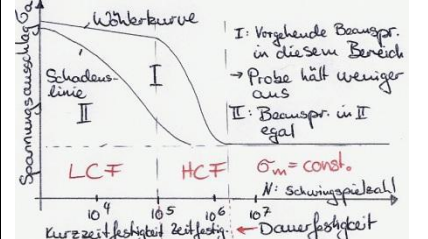 Spannungsausschlag σa
Wöhlerkurve
Schadens-
linie
I
II
I: Vorgehende Beanspr.
in diesem Bereich
→ Probe hält weniger
aus
II: Beanspr. in II
egal
LCF
HCF
σm = const.
N: Schwingspielzahl
10⁴
10⁵
10⁶
10⁷
Kurzzeitfestigkeit
Zeitfestig-
← Dauerfestigkeit